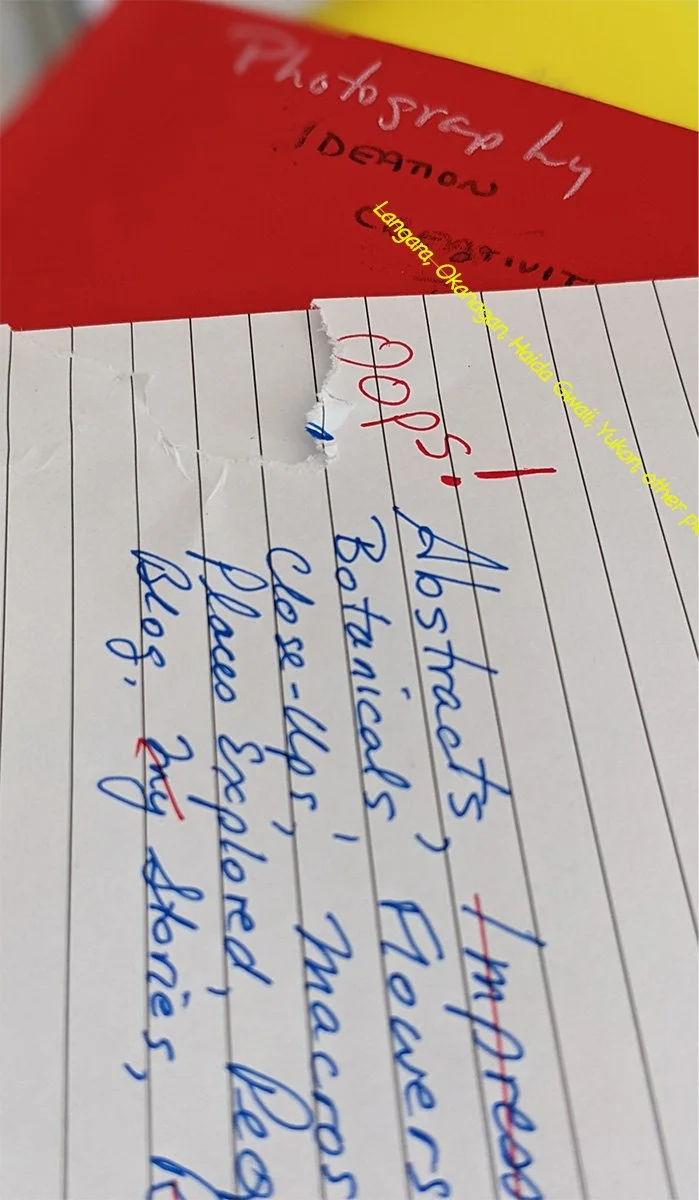 Photography
IDEATION
CREATIVIT
Langara, Okanagan, Haida Gwaii, Yukon, other p
Oops!
Abstracts, Impress
Botanicals, Flowers
Close-Ups, Macros
Places Explored, Peo
Blog, My Stories,